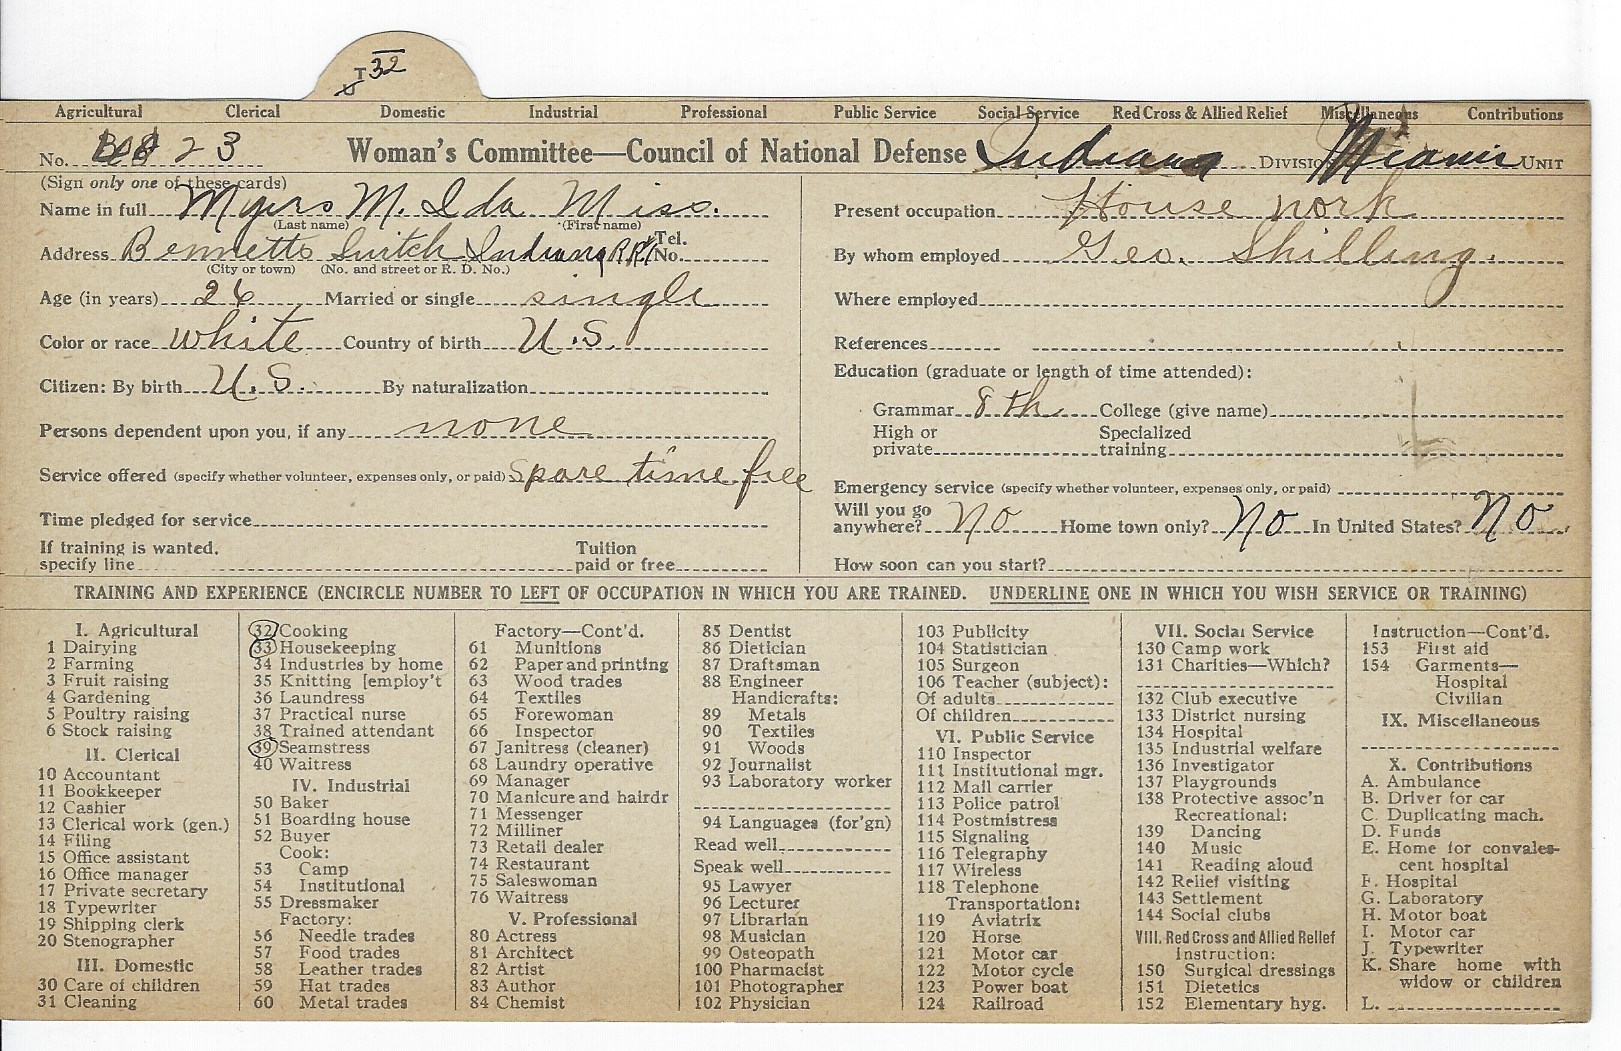 T 32
Agricultural Clerical Domestic Industrial Professional Public Service Social Service Red Cross & Allied Relief Miscellaneous Contributions
No. 23 Woman's Committee—Council of National Defense Indiana Division Miami Unit
(Sign only one of these cards)
Name in full Myers M. Ida Miss.
(Last name) (First name)
Address Bennetts Switch Indiana R.R.1 Tel. No.
(City or town) (No. and street or R. D. No.)
Age (in years) 26 Married or single single
Color or race white Country of birth U.S.
Citizen: By birth U.S. By naturalization
Persons dependent upon you, if any none
Service offered (specify whether volunteer, expenses only, or paid) Spare time free
Time pledged for service
If training is wanted,
specify line
Tuition
paid or free
Present occupation House work
By whom employed Geo. Shilling.
Where employed
References
Education (graduate or length of time attended):
Grammar 8th College (give name)
High or
private
Specialized
training
Emergency service (specify whether volunteer, expenses only, or paid)
Will you go
anywhere? No Home town only? No In United States? No.
How soon can you start?
TRAINING AND EXPERIENCE (ENCIRCLE NUMBER TO LEFT OF OCCUPATION IN WHICH YOU ARE TRAINED. UNDERLINE ONE IN WHICH YOU WISH SERVICE OR TRAINING)
I. Agricultural
1 Dairying
2 Farming
3 Fruit raising
4 Gardening
5 Poultry raising
6 Stock raising
II. Clerical
10 Accountant
11 Bookkeeper
12 Cashier
13 Clerical work (gen.)
14 Filing
15 Office assistant
16 Office manager
17 Private secretary
18 Typewriter
19 Shipping clerk
20 Stenographer
III. Domestic
30 Care of children
31 Cleaning
32 Cooking
33 Housekeeping
34 Industries by home
35 Knitting [employ't
36 Laundress
37 Practical nurse
38 Trained attendant
39 Seamstress
40 Waitress
IV. Industrial
50 Baker
51 Boarding house
52 Buyer
Cook:
53 Camp
54 Institutional
55 Dressmaker
Factory:
56 Needle trades
57 Food trades
58 Leather trades
59 Hat trades
60 Metal trades
Factory—Cont'd.
61 Munitions
62 Paper and printing
63 Wood trades
64 Textiles
65 Forewoman
66 Inspector
67 Janitress (cleaner)
68 Laundry operative
69 Manager
70 Manicure and hairdr
71 Messenger
72 Milliner
73 Retail dealer
74 Restaurant
75 Saleswoman
76 Waitress
V. Professional
80 Actress
81 Architect
82 Artist
83 Author
84 Chemist
85 Dentist
86 Dietician
87 Draftsman
88 Engineer
Handicrafts:
89 Metals
90 Textiles
91 Woods
92 Journalist
93 Laboratory worker
94 Languages (for'gn)
Read well
Speak well
95 Lawyer
96 Lecturer
97 Librarian
98 Musician
99 Osteopath
100 Pharmacist
101 Photographer
102 Physician
103 Publicity
104 Statistician
105 Surgeon
106 Teacher (subject):
Of adults
Of children
VI. Public Service
110 Inspector
111 Institutional mgr.
112 Mail carrier
113 Police patrol
114 Postmistress
115 Signaling
116 Telegraphy
117 Wireless
118 Telephone
Transportation:
119 Aviatrix
120 Horse
121 Motor car
122 Motor cycle
123 Power boat
124 Railroad
VII. Social Service
130 Camp work
131 Charities—Which?
132 Club executive
133 District nursing
134 Hospital
135 Industrial welfare
136 Investigator
137 Playgrounds
138 Protective assoc'n
Recreational:
139 Dancing
140 Music
141 Reading aloud
142 Relief visiting
143 Settlement
144 Social clubs
VIII. Red Cross and Allied Relief
Instruction:
150 Surgical dressings
151 Dietetics
152 Elementary hyg.
Instruction—Cont'd.
153 First aid
154 Garments—
Hospital
Civilian
IX. Miscellaneous
X. Contributions
A. Ambulance
B. Driver for car
C. Duplicating mach.
D. Funds
E. Home for convales-
cent hospital
F. Hospital
G. Laboratory
H. Motor boat
I. Motor car
J. Typewriter
K. Share home with
widow or children
L.